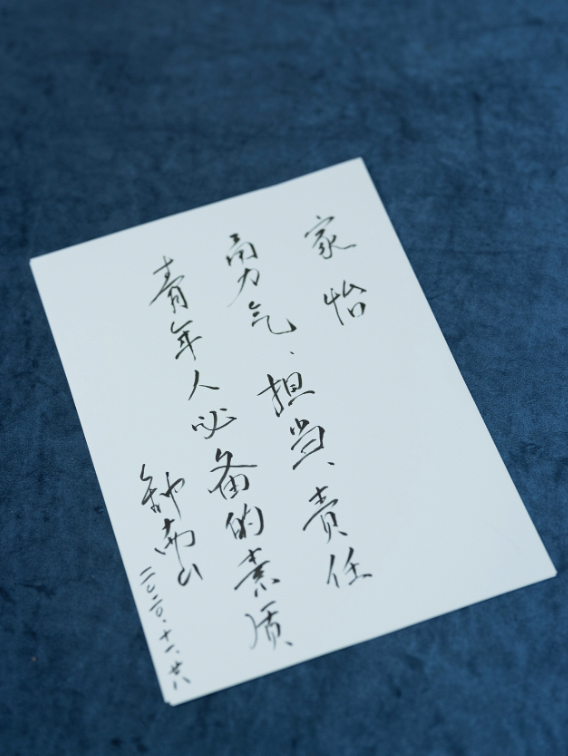 家怡
勇气、担当、责任
青年人必备的素质
钟南山
二〇二〇.十一.廿八